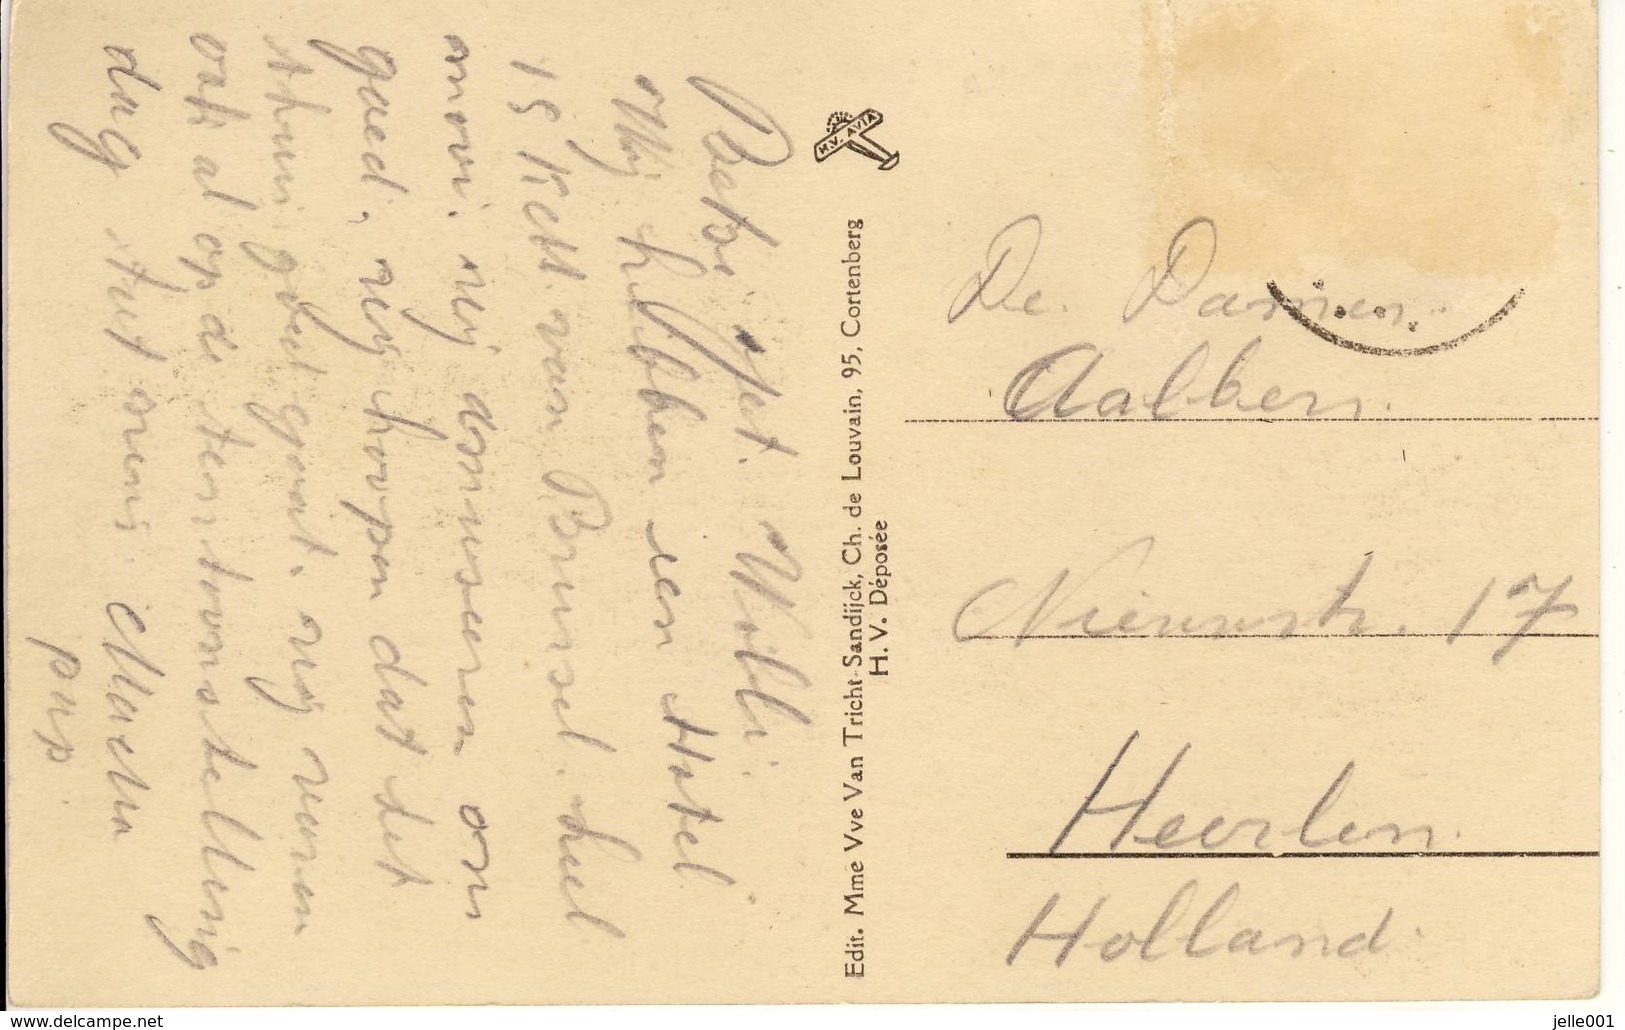 Beste Jet. Wobbi.
Wij hebben een Hotel
15 Kets. van Brussel. heel
mooi. wij amuseeren ons
goed, wij hoopen dat het
thuis goed gaat. wij waren
ook al op de tentoonstelling
dag Jet mini. Mama
pap
H.V. AVIA
Edit. Mme Vve Van Tricht-Sandijck, Ch. de Louvain, 95, Cortenberg
H. V. Déposée
De. Damen.
Aalbers.
Nieuwstr. 17
Heerlen.
Holland.
www.delcampe.net
jelle001